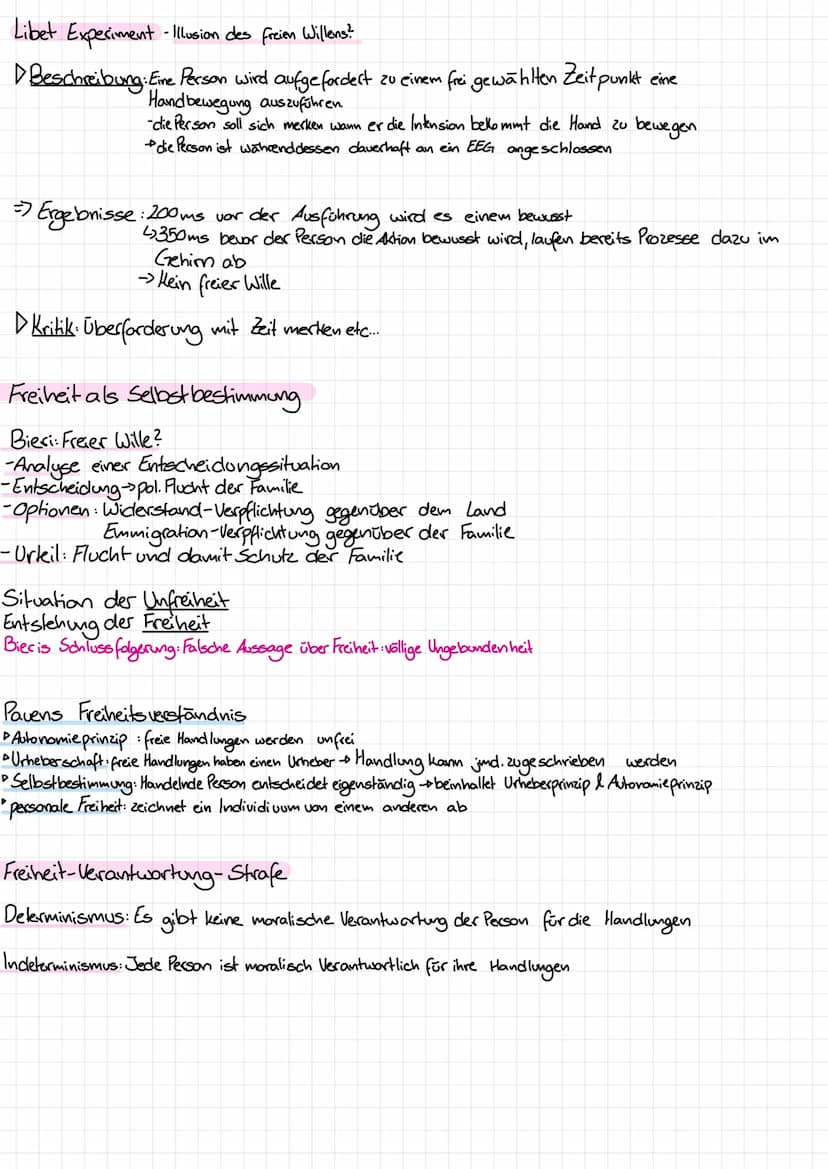 Libet Experiment - Illusion des freien Willens?
▷ Beschreibung: Eine Person wird aufgefordert zu einem frei gewählten Zeitpunkt eine
Handbewegung auszuführen
-die Person soll sich merken wann er die Intension bekommt die Hand zu bewegen
→ die Person ist währenddessen dauerhaft an ein EEG angeschlossen
=> Ergebnisse: 200ms vor der Ausführung wird es einem bewusst
↳ 350ms bevor der Person die Aktion bewusst wird, laufen bereits Prozesse dazu im
Gehirn ab
→ Kein freier Wille
▷ Kritik: Überforderung mit Zeit merken etc...
Freiheit als Selbstbestimmung
Bieri: Freier Wille?
-Analyse einer Entscheidungssituation
-Entscheidung → pol. Flucht der Familie
-Optionen: Widerstand-Verpflichtung gegenüber dem Land
Emmigration-Verpflichtung gegenüber der Familie
-Urteil: Flucht und damit Schutz der Familie
Situation der Unfreiheit
Entstehung der Freiheit
Bieris Schlussfolgerung: Falsche Aussage über Freiheit: völlige Ungebundenheit
Pauens Freiheitsverständnis
▷ Autonomieprinzip: freie Handlungen werden unfrei
▷ Urheberschaft: freie Handlungen haben einen Urheber → Handlung kann jmd. zugeschrieben werden
▷ Selbstbestimmung: Handelnde Person entscheidet eigenständig → beinhaltet Urheberprinzip & Autonomieprinzip
▷ personale Freiheit: zeichnet ein Individuum von einem anderen ab
Freiheit-Verantwortung-Strafe
Determinismus: Es gibt keine moralische Verantwortung der Person für die Handlungen
Indeterminismus: Jede Person ist moralisch Verantwortlich für ihre Handlungen